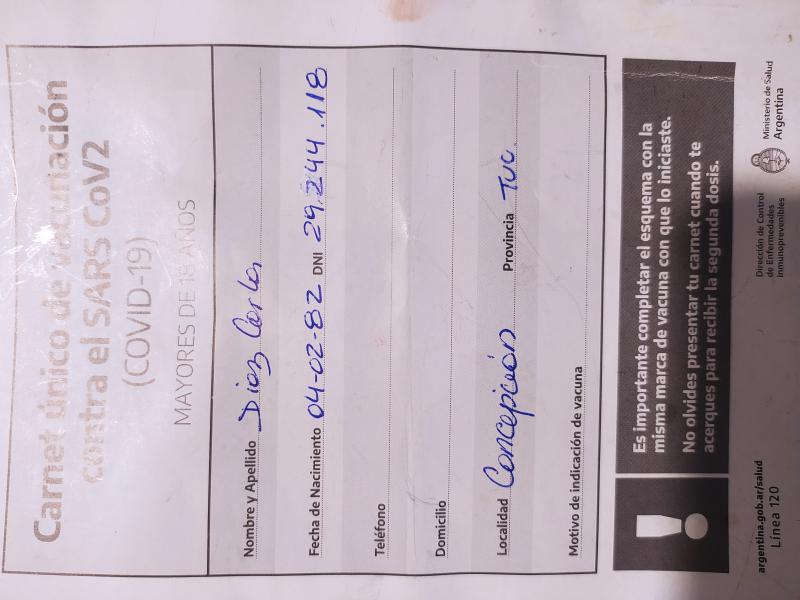 Carnet único de vacunación
contra el SARS CoV2
(COVID-19)
MAYORES DE 18 AÑOS
Nombre y Apellido Diaz Carlos
Fecha de Nacimiento 04-02-82 DNI 29.244.118
Teléfono
Domicilio
Localidad Concepción Provincia TUC.
Motivo de indicación de vacuna
Es importante completar el esquema con la
misma marca de vacuna con que lo iniciaste.
No olvides presentar tu carnet cuando te
acerques para recibir la segunda dosis.
argentina.gob.ar/salud
Línea 120
Dirección de Control
de Enfermedades
Inmunoprevenibles
Ministerio de Salud
Argentina